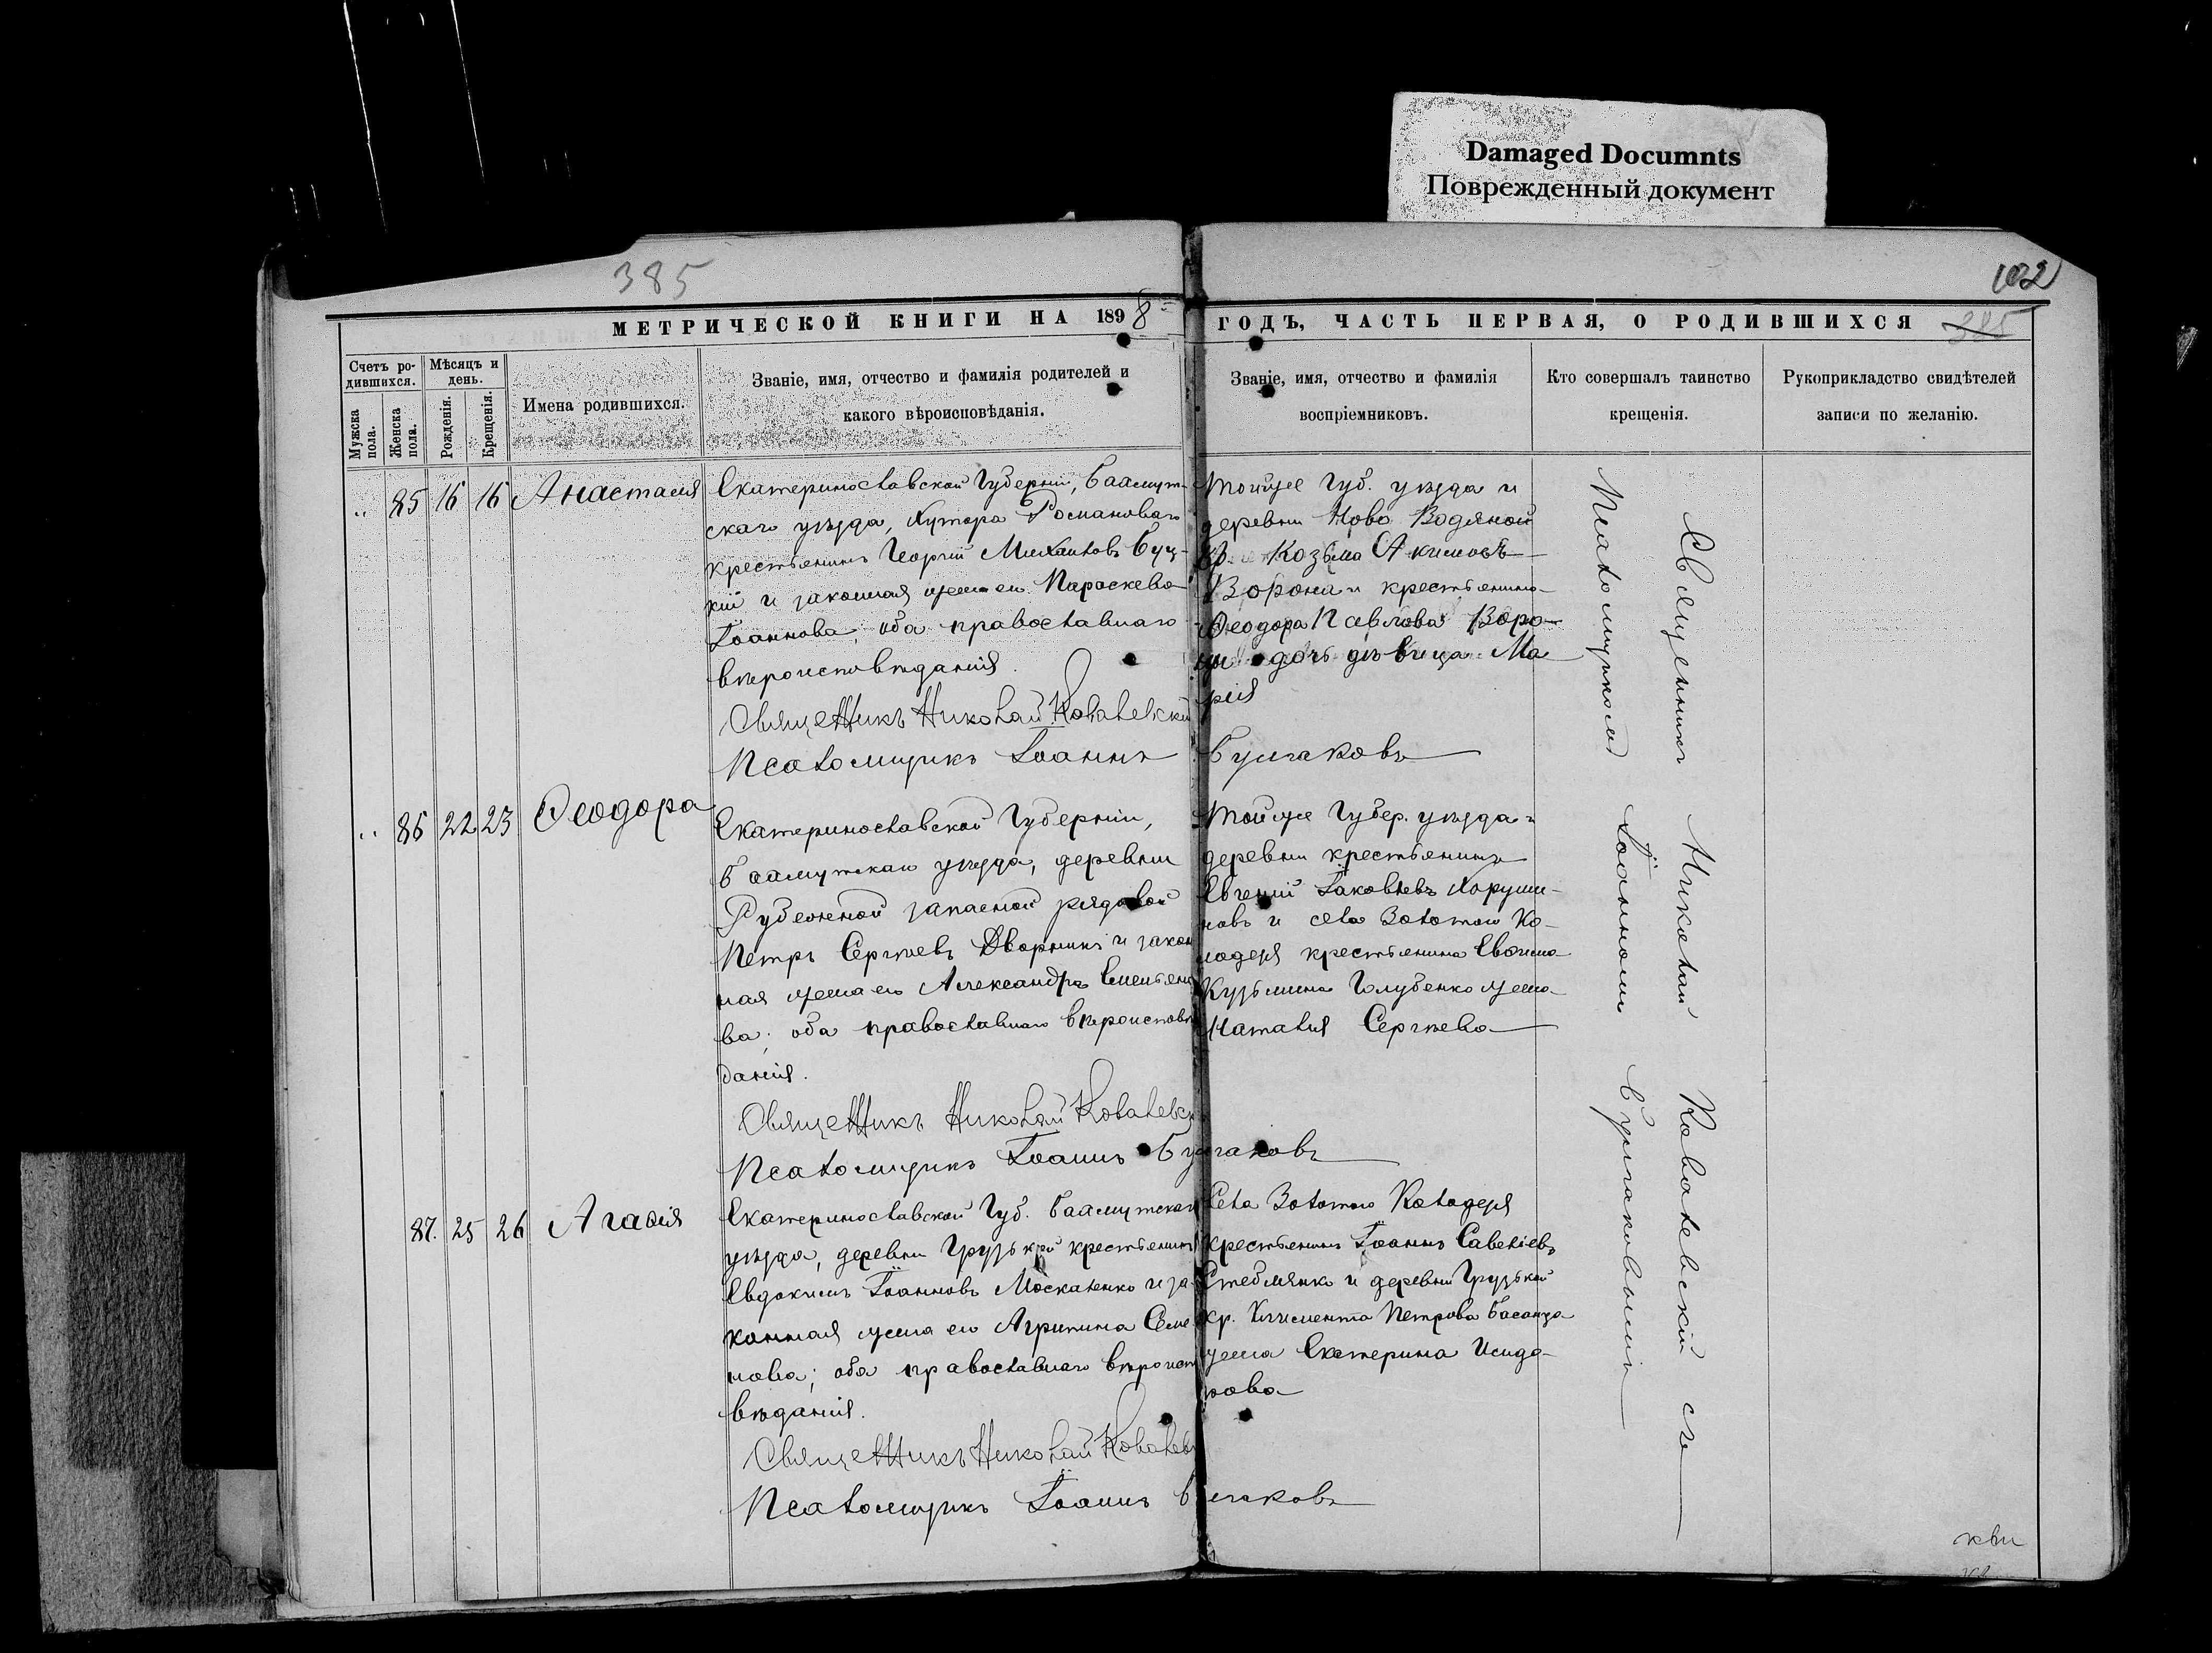 Damaged Documnts
Поврежденный документ
385
102
МЕТРИЧЕСКОЙ КНИГИ НА 1898
ГОДЪ, ЧАСТЬ ПЕРВАЯ, О РОДИВШИХСЯ
385
Счетъ ро-
дившихся.
Мужска пола.
Женска пола.
Мѣсяцъ и
день.
Рожденія.
Крещенія.
Имена родившихся.
Званіе, имя, отчество и фамилія родителей и
какого вѣроисповѣданія.
Званіе, имя, отчество и фамилія
воспріемниковъ.
Кто совершалъ таинство
крещенія.
Рукоприкладство свидѣтелей
записи по желанію.
„ 85 16 16 Анастасія
Екатеринославской Губерніи, Бахмут-
скаго уѣзда, Хутора Романоваго
крестьянинъ Георгій Михаиловъ Буц-
кій и законная жена его Параскева
Іоаннова; оба православнаго
вѣроисповѣданія.
Священникъ Николай Ковалевскій
Псаломщикъ Іоаннъ Булгаковъ
Тойже Губ. уѣзда и
деревни Ново Водяной
кр. Козьма Акимовъ
Ворона и крестьянина
Ѳеодора Павлова Воро-
ны дочь дѣвица Ма
рія
„ 86 22 23 Ѳеодора
Екатеринославской Губерніи,
Бахмутскаго уѣзда, деревни
Рубежной запасной рядовой
Петръ Сергѣевъ Дворникъ и закон
ная жена его Александра Емельяно
ва; оба православнаго вѣроисповѣ
данія.
Священникъ Николай Ковалевск
Псаломщикъ Іоаннъ Булгаковъ
Тойже Губер. уѣзда и
деревни крестьянинъ
Евгеній Іаковлевъ Хоружи-
новъ и села Золотого Ко-
лодезя крестьянина Евѳима
Кузьмина Голубенко жена
Наталія Сергѣева
87. 25 26 Агаѳія
Екатеринославской Губ. Бахмутскаго
уѣзда, деревни Грузькой крестьянинъ
Евдокимъ Іоанновъ Москаленко и за-
конная жена его Агрипина Семе
нова; оба православнаго вѣроиспо
вѣданія.
Священникъ Николай Ковалевс
Псаломщикъ Іоаннъ Булгаковъ
Села Золотого Колодезя
крестьянинъ Іоаннъ Савеліевъ
Стеблянко и деревни Грузькой
кр. Климента Петрова
жена Екатерина Исидо-
рова
Священникъ Николай Ковалевскій съ
Псаломщикомъ Іоанномъ Булгаковымъ